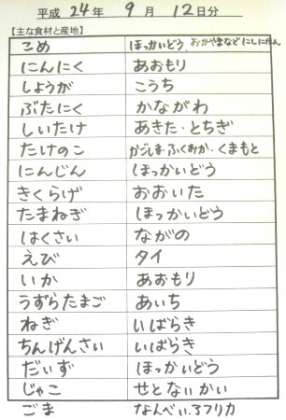 平成 24年 9月 12日分
【主な食材と産地】
こめ ほっかいどう おかやまなどにしにほん
にんにく あおもり
しょうが こうち
ぶたにく かながわ
しいたけ あきた・とちぎ
たけのこ かごしま・ふくおか・くまもと
にんじん ほっかいどう
きくらげ おおいた
たまねぎ ほっかいどう
はくさい ながの
えび タイ
いか あおもり
うずらたまご あいち
ねぎ いばらき
ちんげんさい いばらき
だいず ほっかいどう
じゃこ せとないかい
ごま なんべい・アフリカ